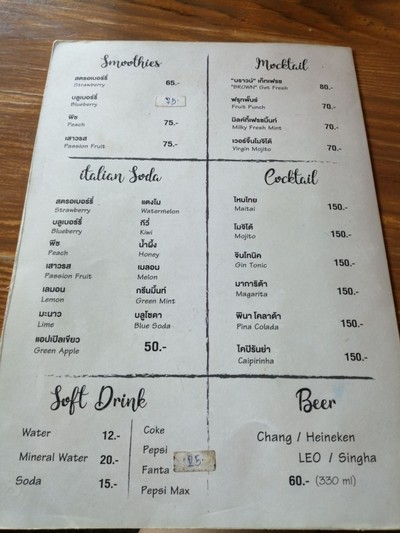 Smoothies
สตรอเบอร์รี่
Strawberry 65.-
บลูเบอร์รี่
Blueberry
พีช
Peach 75.-
เสาวรส
Passion Fruit 75.-
Mocktail
"บราวน์" เก็ทเฟรช
"BROWN" Get Fresh 80.-
ฟรุตพันช์
Fruit Punch 70.-
มิลค์กี้เฟรชมิ้นท์
Milky Fresh Mint 70.-
เวอร์จิ้นโมจิโต้
Virgin Mojito 70.-
italian Soda
สตรอเบอร์รี่
Strawberry
บลูเบอร์รี่
Blueberry
พีช
Peach
เสาวรส
Passion Fruit
เลมอน
Lemon
มะนาว
Lime
แอปเปิลเขียว
Green Apple
แตงโม
Watermelon
กีวี่
Kiwi
น้ำผึ้ง
Honey
เมลอน
Melon
กรีนมิ้นท์
Green Mint
บลูโซดา
Blue Soda
50.-
Cocktail
ไหมไทย
Maitai 150.-
โมจิโต้
Mojito 150.-
จินโทนิค
Gin Tonic 150.-
มาการิต้า
Magarita 150.-
พินา โคลาด้า
Pina Colada 150.-
ไคปิรินย่า
Caipirinha 150.-
Soft Drink
Water 12.-
Mineral Water 20.-
Soda 15.-
Coke
Pepsi
Fanta 25.-
Pepsi Max
Beer
Chang / Heineken
LEO / Singha
60.- (330 ml)